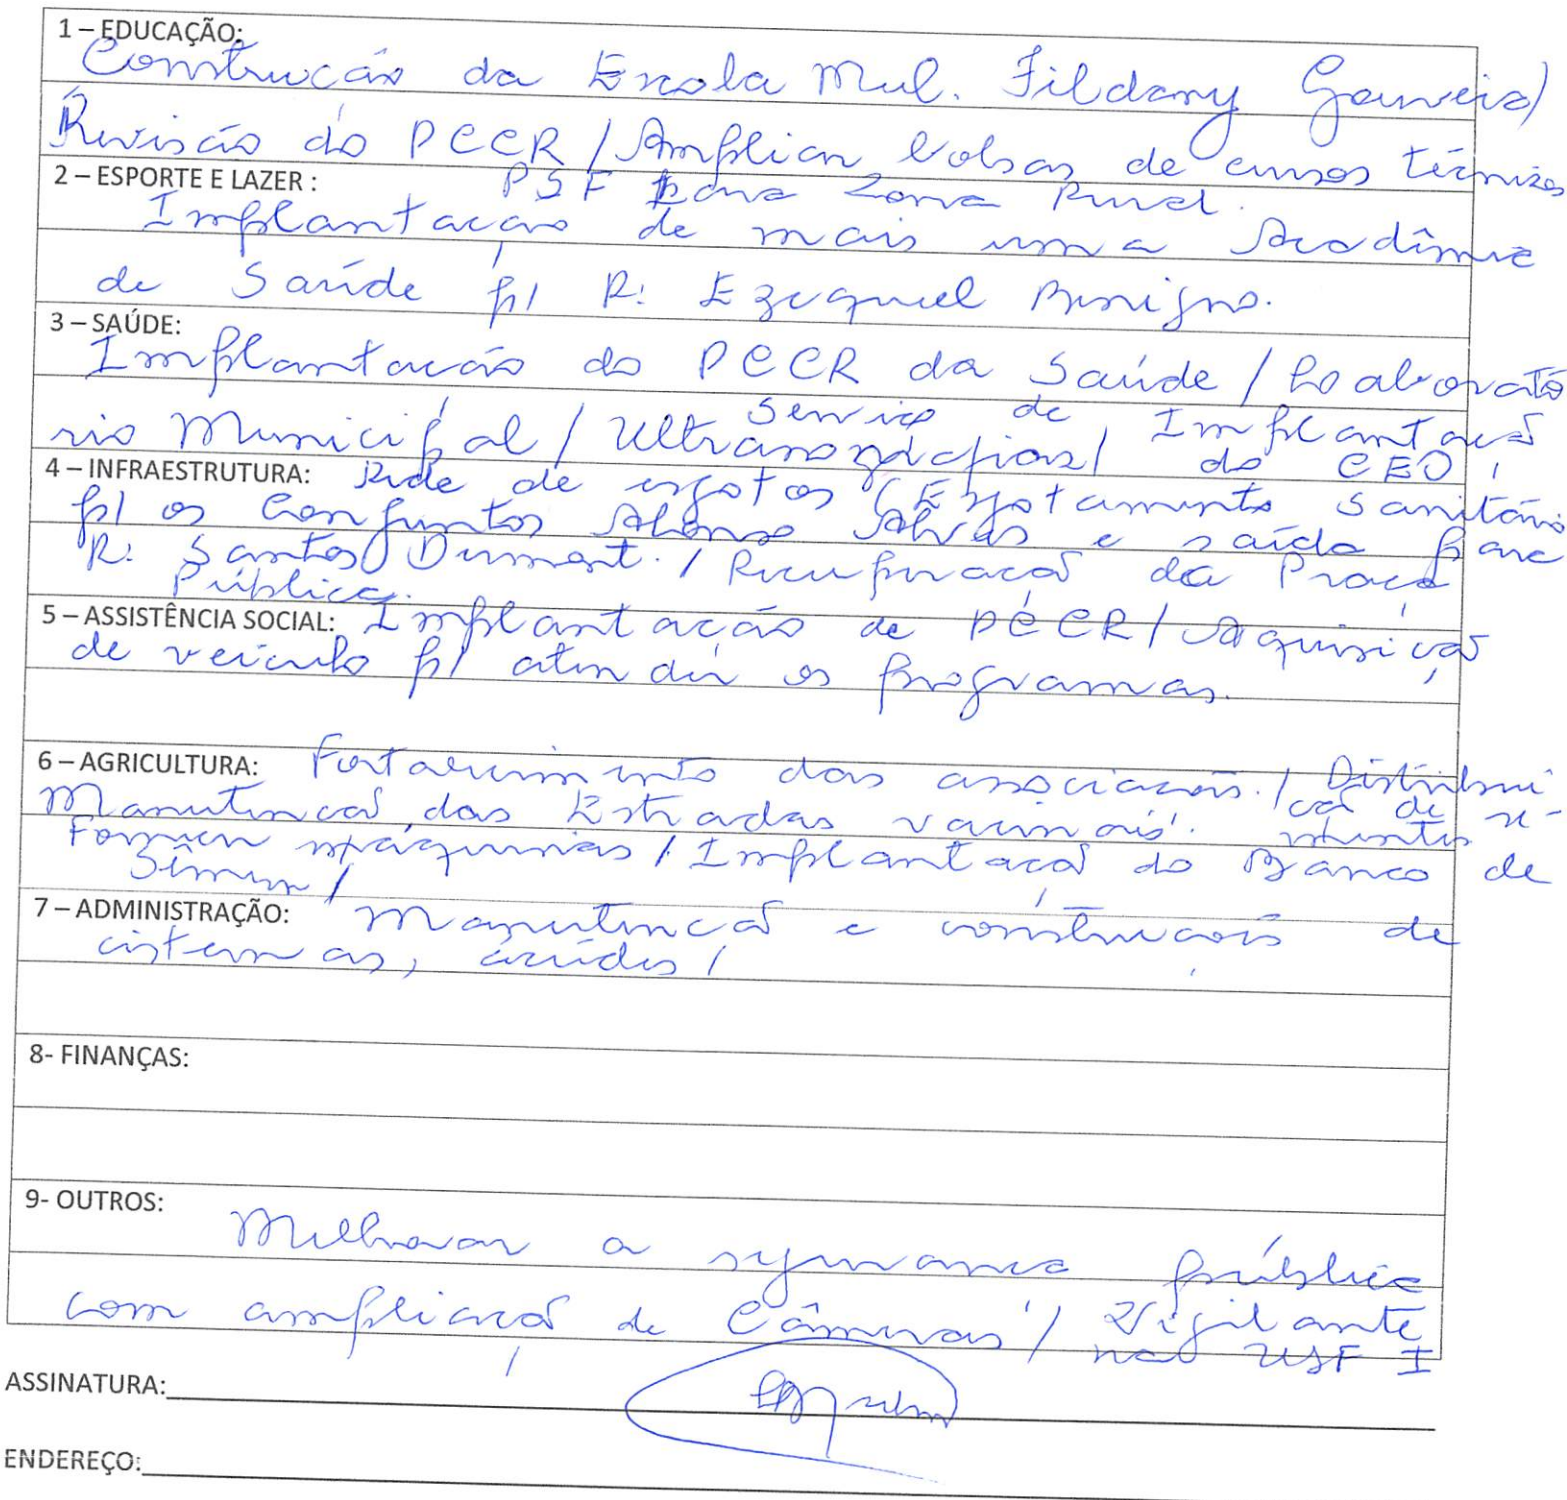 1 – EDUCAÇÃO:
Construção da Escola Mul. Fildany Gouveia/
Revisão do PCCR / Ampliar bolsas de cursos técnicos
2 – ESPORTE E LAZER : PSF para Zona Rural.
Implantação de mais uma Acadêmia
de Saúde p/ R: Ezequiel Benigno.
3 – SAÚDE:
Implantação do PCCR da Saúde / Laborató
rio Municipal / Serviço de Ultrasonografias / Implantação do CEO
4 – INFRAESTRUTURA: Rede de esgotos (Esgotamento Sanitário
p/ os Conjuntos Afonso Alves e saída para
R: Santos Dumont. / Recuperação da Praça
Pública.
5 – ASSISTÊNCIA SOCIAL: Implantação de PCCR / Aquisição
de veículo p/ atender os programas.
6 – AGRICULTURA: Fortalecimento das associações. / Distribui
ção de se-
Manutenção das Estradas vicinais. mentes
Fornecer máquinas / Implantação do Banco de
Sêmen /
7 – ADMINISTRAÇÃO: Manutenção e construções de
cisternas, açudes /
8- FINANÇAS:
9- OUTROS:
Melhorar a segurança pública
com ampliação de Câmeras / Vigilante
na USF I
ASSINATURA:
ENDEREÇO: